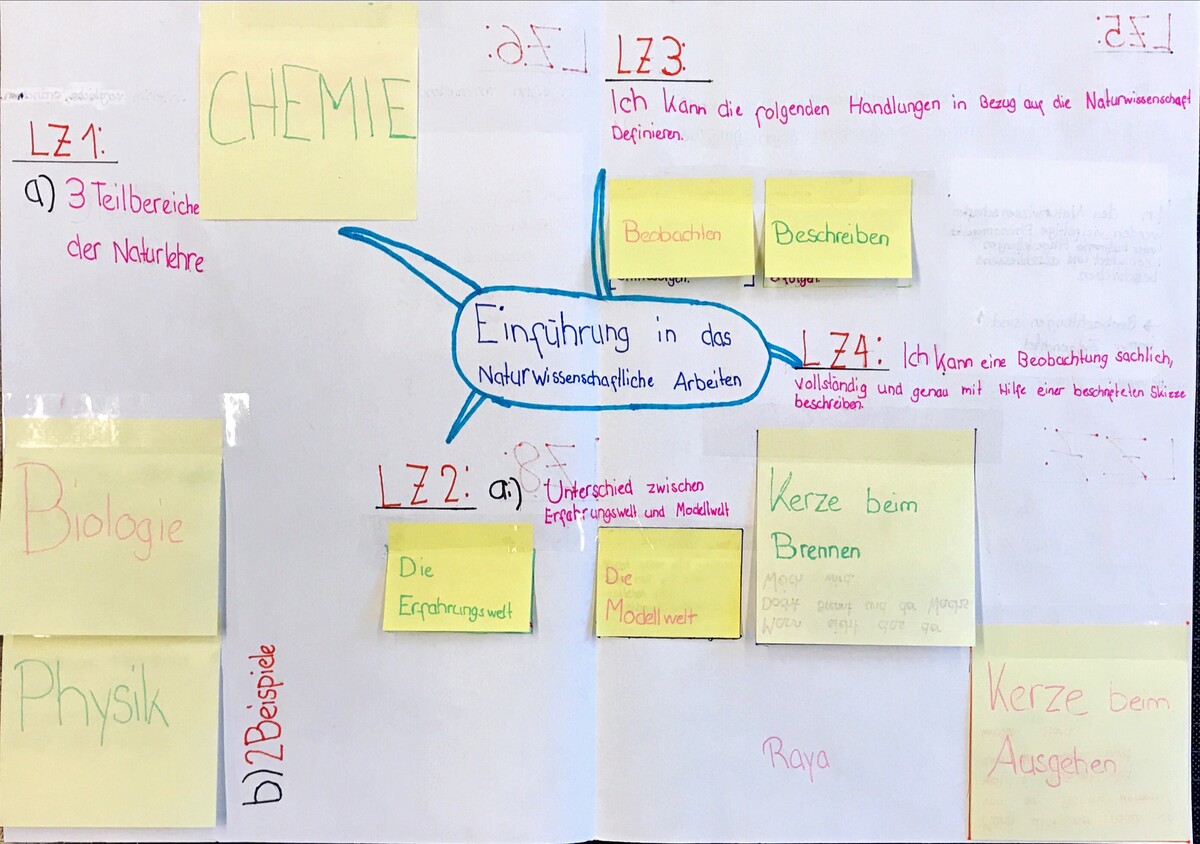 CHEMIE
LZ1:
a) 3 Teilbereiche
der Naturlehre
LZ6:
LZ5:
LZ3:
Ich kann die folgenden Handlungen in Bezug auf die Naturwissenschaft
Definieren.
Beobachten
Beschreiben
erfolgen.
Einführung in das
Naturwissenschaftliche Arbeiten
LZ4: Ich kann eine Beobachtung sachlich,
vollständig und genau mit Hilfe einer beschrifteten Skizze
beschreiben.
LZ2: a:) Unterschied zwischen
Erfahrungswelt und Modellwelt
Die
Erfahrungswelt
Die
Modellwelt
Kerze beim
Brennen
Kerze beim
Ausgehen
Biologie
Physik
b) 2 Beispiele
Raya